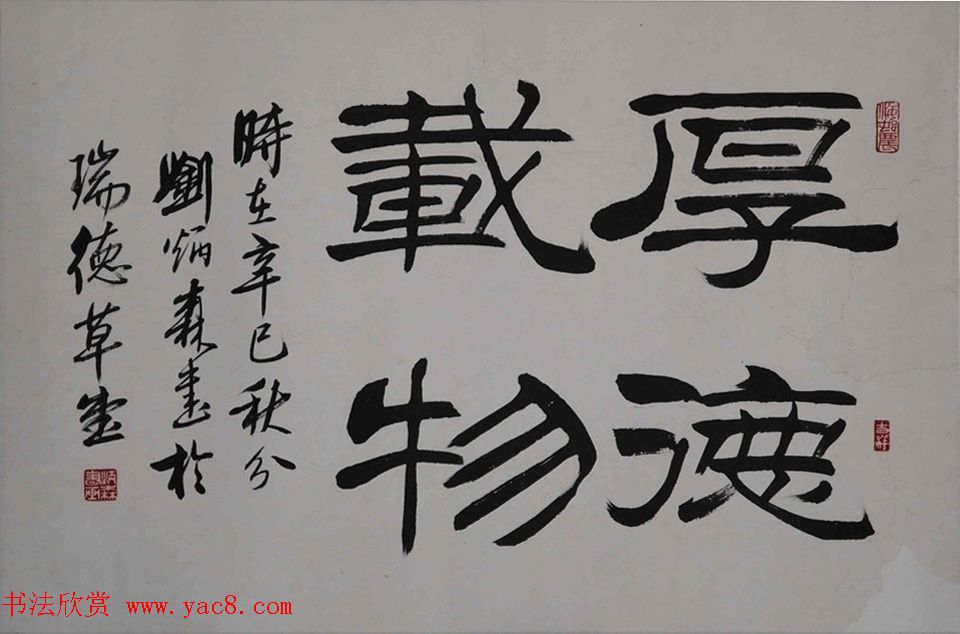 厚德
載物
時在辛巳秋分
劉炳森書於
瑞德草堂
吉祥
书法欣赏 www.yac8.com